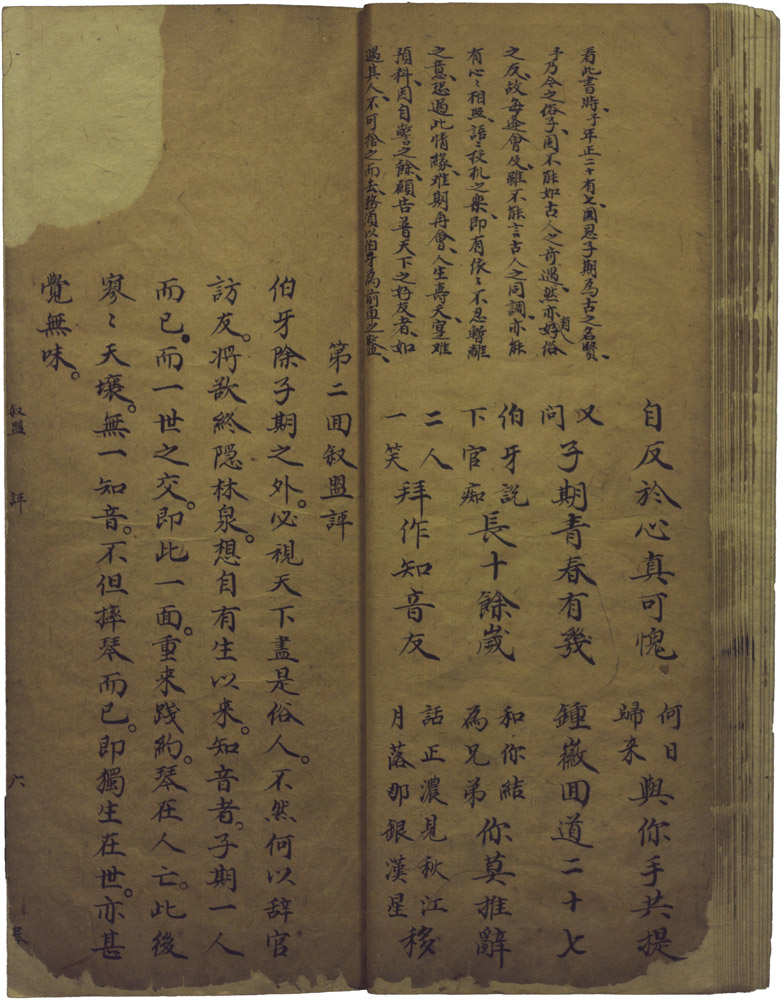 看此書時予年正二十有七因思子期為古之名賢、
予乃今之俗子、固不能如古人之奇遇、然亦好俗
之友、故每逢會及、雖不能言古人之同調、亦能
有心〻相照、語〻投机之樂、即有依〻不忍暫離
之意、恐過此情緣、难期再會、人生壽夭、寔难
預料、因自警之餘、願告普天下之好友者、如
遇其人、不可捨之而去、務須以伯牙為前車之鑒、
自反於心真可愧 何日歸来與你手共提
又問子期青春有幾 鍾徽回道二十七
伯牙說下官痴長十餘歲 和你結為兄弟你莫推辭
二人一笑拜作知音友 話正濃見秋江月落那銀漢星移
第二回叙盟評
伯牙除子期之外。必視天下盡是俗人。不然何以辞官
訪友。將欲終隱林泉。想自有生以来。知音者。子期一人
而已。而一世之交。即此一面。重来踐約。琴在人亡。此後
寥〻天壤。無一知音。不但摔琴而已。即獨生在世。亦甚
覺無味。
叙盟 評 六